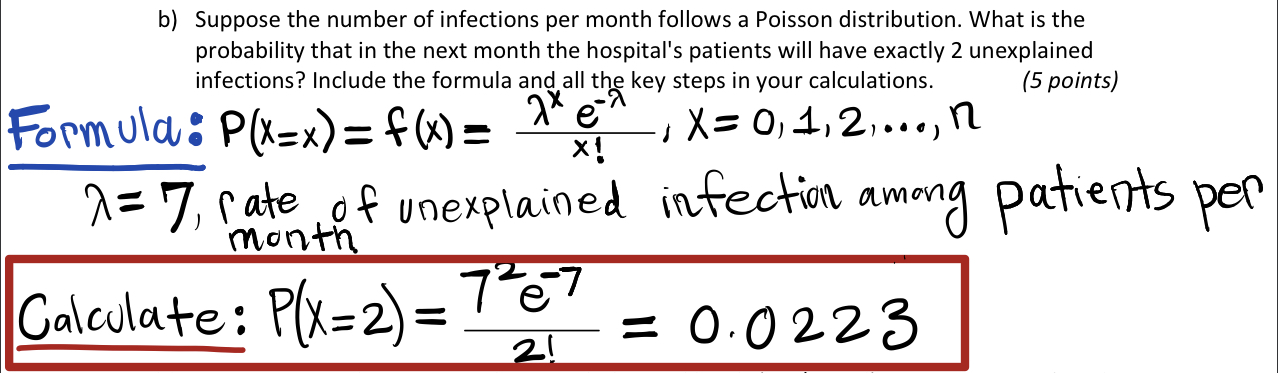 b) Suppose the number of infections per month follows a Poisson distribution. What is the
probability that in the next month the hospital's patients will have exactly 2 unexplained
infections? Include the formula and all the key steps in your calculations. (5 points)
Formula: P(X=x) = f(x) = λ^x e^-λ / x! , X = 0, 1, 2, ..., n
λ = 7, rate of unexplained infection among patients per
month
Calculate: P(X=2) = 7^2 e^-7 / 2! = 0.0223